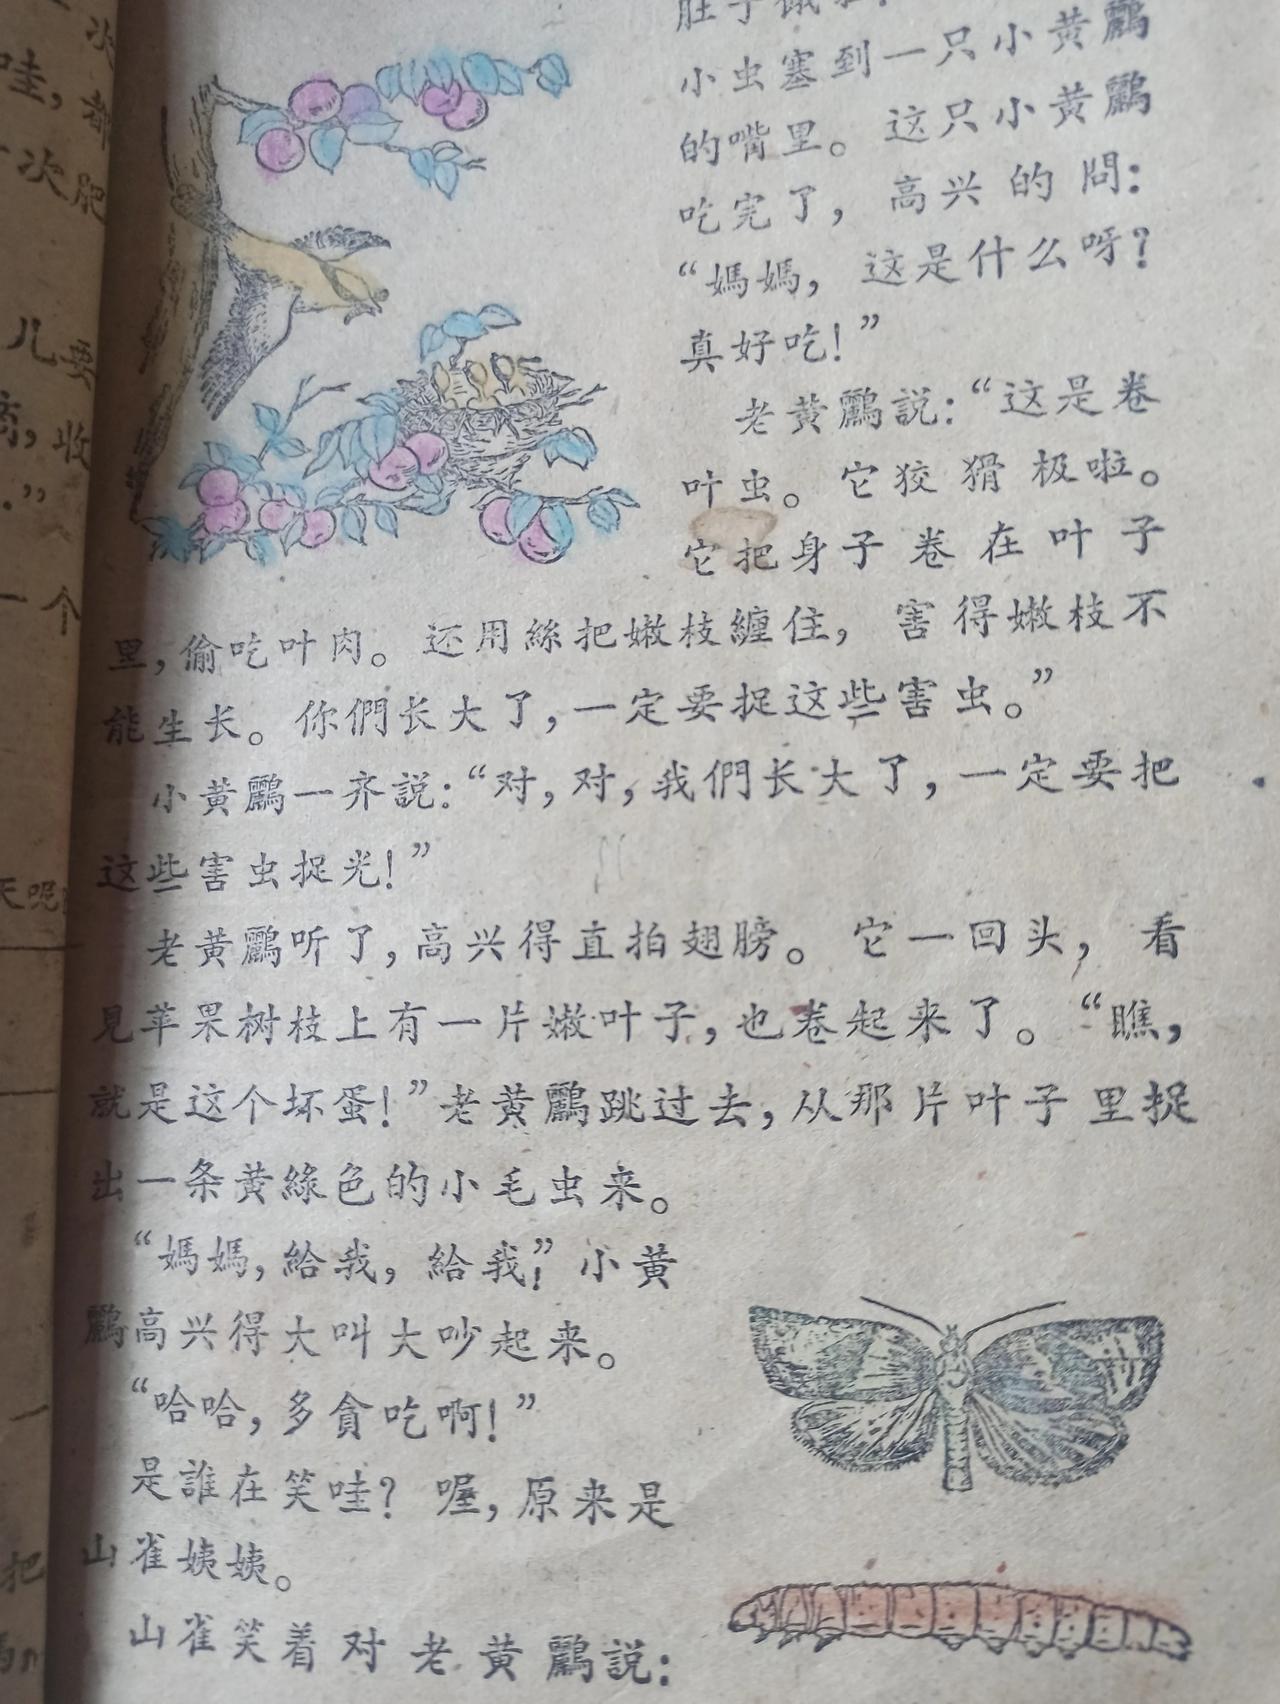 小虫塞到一只小黄鸝
的嘴里。这只小黄鸝
吃完了，高兴的問：
“媽媽，这是什么呀？
真好吃！”
老黄鸝説：“这是卷
叶虫。它狡猾极啦。
它把身子卷在叶子
里，偷吃叶肉。还用絲把嫩枝纏住，害得嫩枝不
能生长。你們长大了，一定要捉这些害虫。”
小黄鸝一齐説：“对，对，我們长大了，一定要把
这些害虫捉光！”
老黄鸝听了，高兴得直拍翅膀。它一回头，看
見苹果树枝上有一片嫩叶子，也卷起来了。“瞧，
就是这个坏蛋！”老黄鸝跳过去，从那片叶子里捉
出一条黄綠色的小毛虫来。
“媽媽，給我，給我！”小黄
鸝高兴得大叫大吵起来。
“哈哈，多貪吃啊！”
是誰在笑哇？喔，原来是
山雀姨姨。
山雀笑着对老黄鸝説：